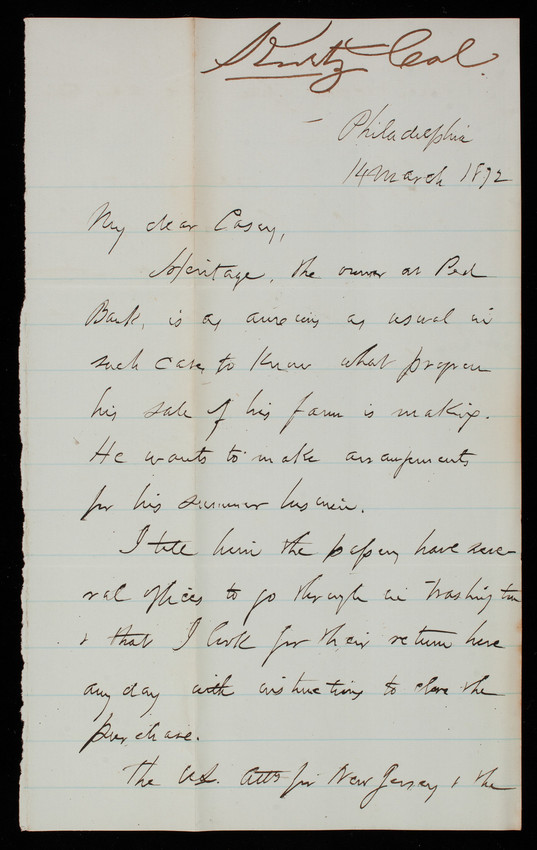 Kurtz Col.
Philadelphia
14 March 1872
My dear Casey,
Heritage, the owner at Red
Bank, is as anxious as usual in
such case, to know what progress
his sale of his farm is making.
He wants to make arrangements
for his summer business.
I tell him the papers have seve-
ral offices to go through in Washington
& that I look for their return here
any day with instructions to close the
purchase.
The U.S. Atty for New Jersey & the